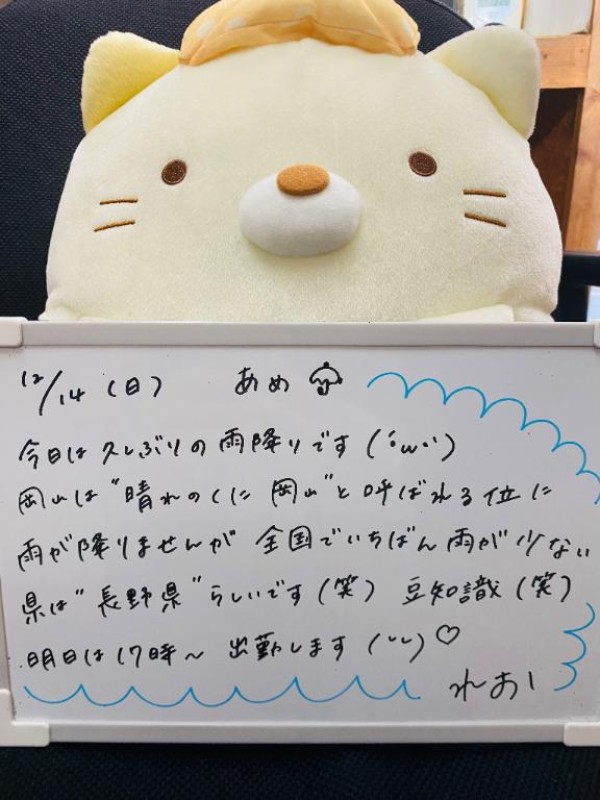 12/14 (日) あめ
今日は久しぶりの雨降りです(´ω`)
岡山は"晴れのくに 岡山"と呼ばれる位に
雨が降りませんが 全国でいちばん雨が少ない
県は"長野県"らしいです(笑) 豆知識(笑)
明日は17時〜 出勤します(˘︶˘)♡
れお